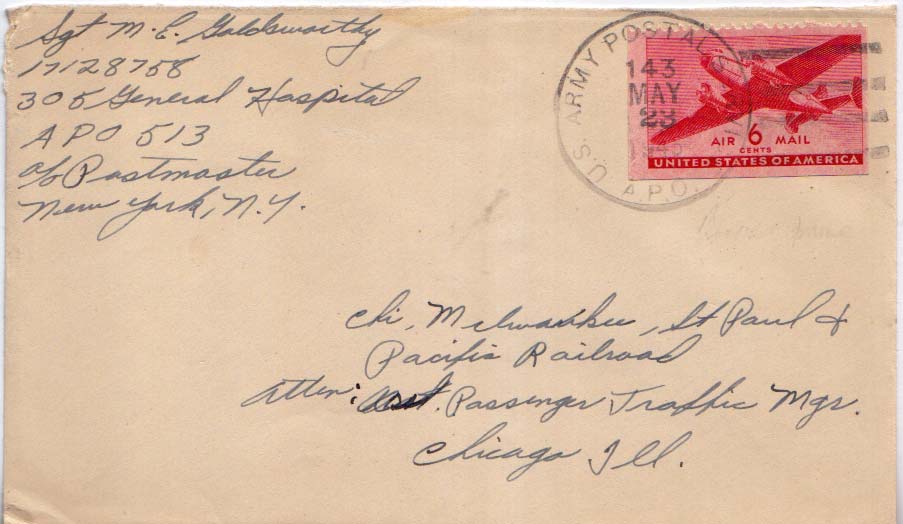 Sgt M. E. Goldsworthy
17128758
305 General Hospital
APO 513
c/o Postmaster
New York, N.Y.
U.S. ARMY POSTAL
A.P.O.
143
MAY
23
AIR 6 MAIL
CENTS
UNITED STATES OF AMERICA
Chi, Milwaukee, St Paul &
Pacific Railroad
Atten: Asst. Passenger Traffic Mgr.
Chicago Ill.